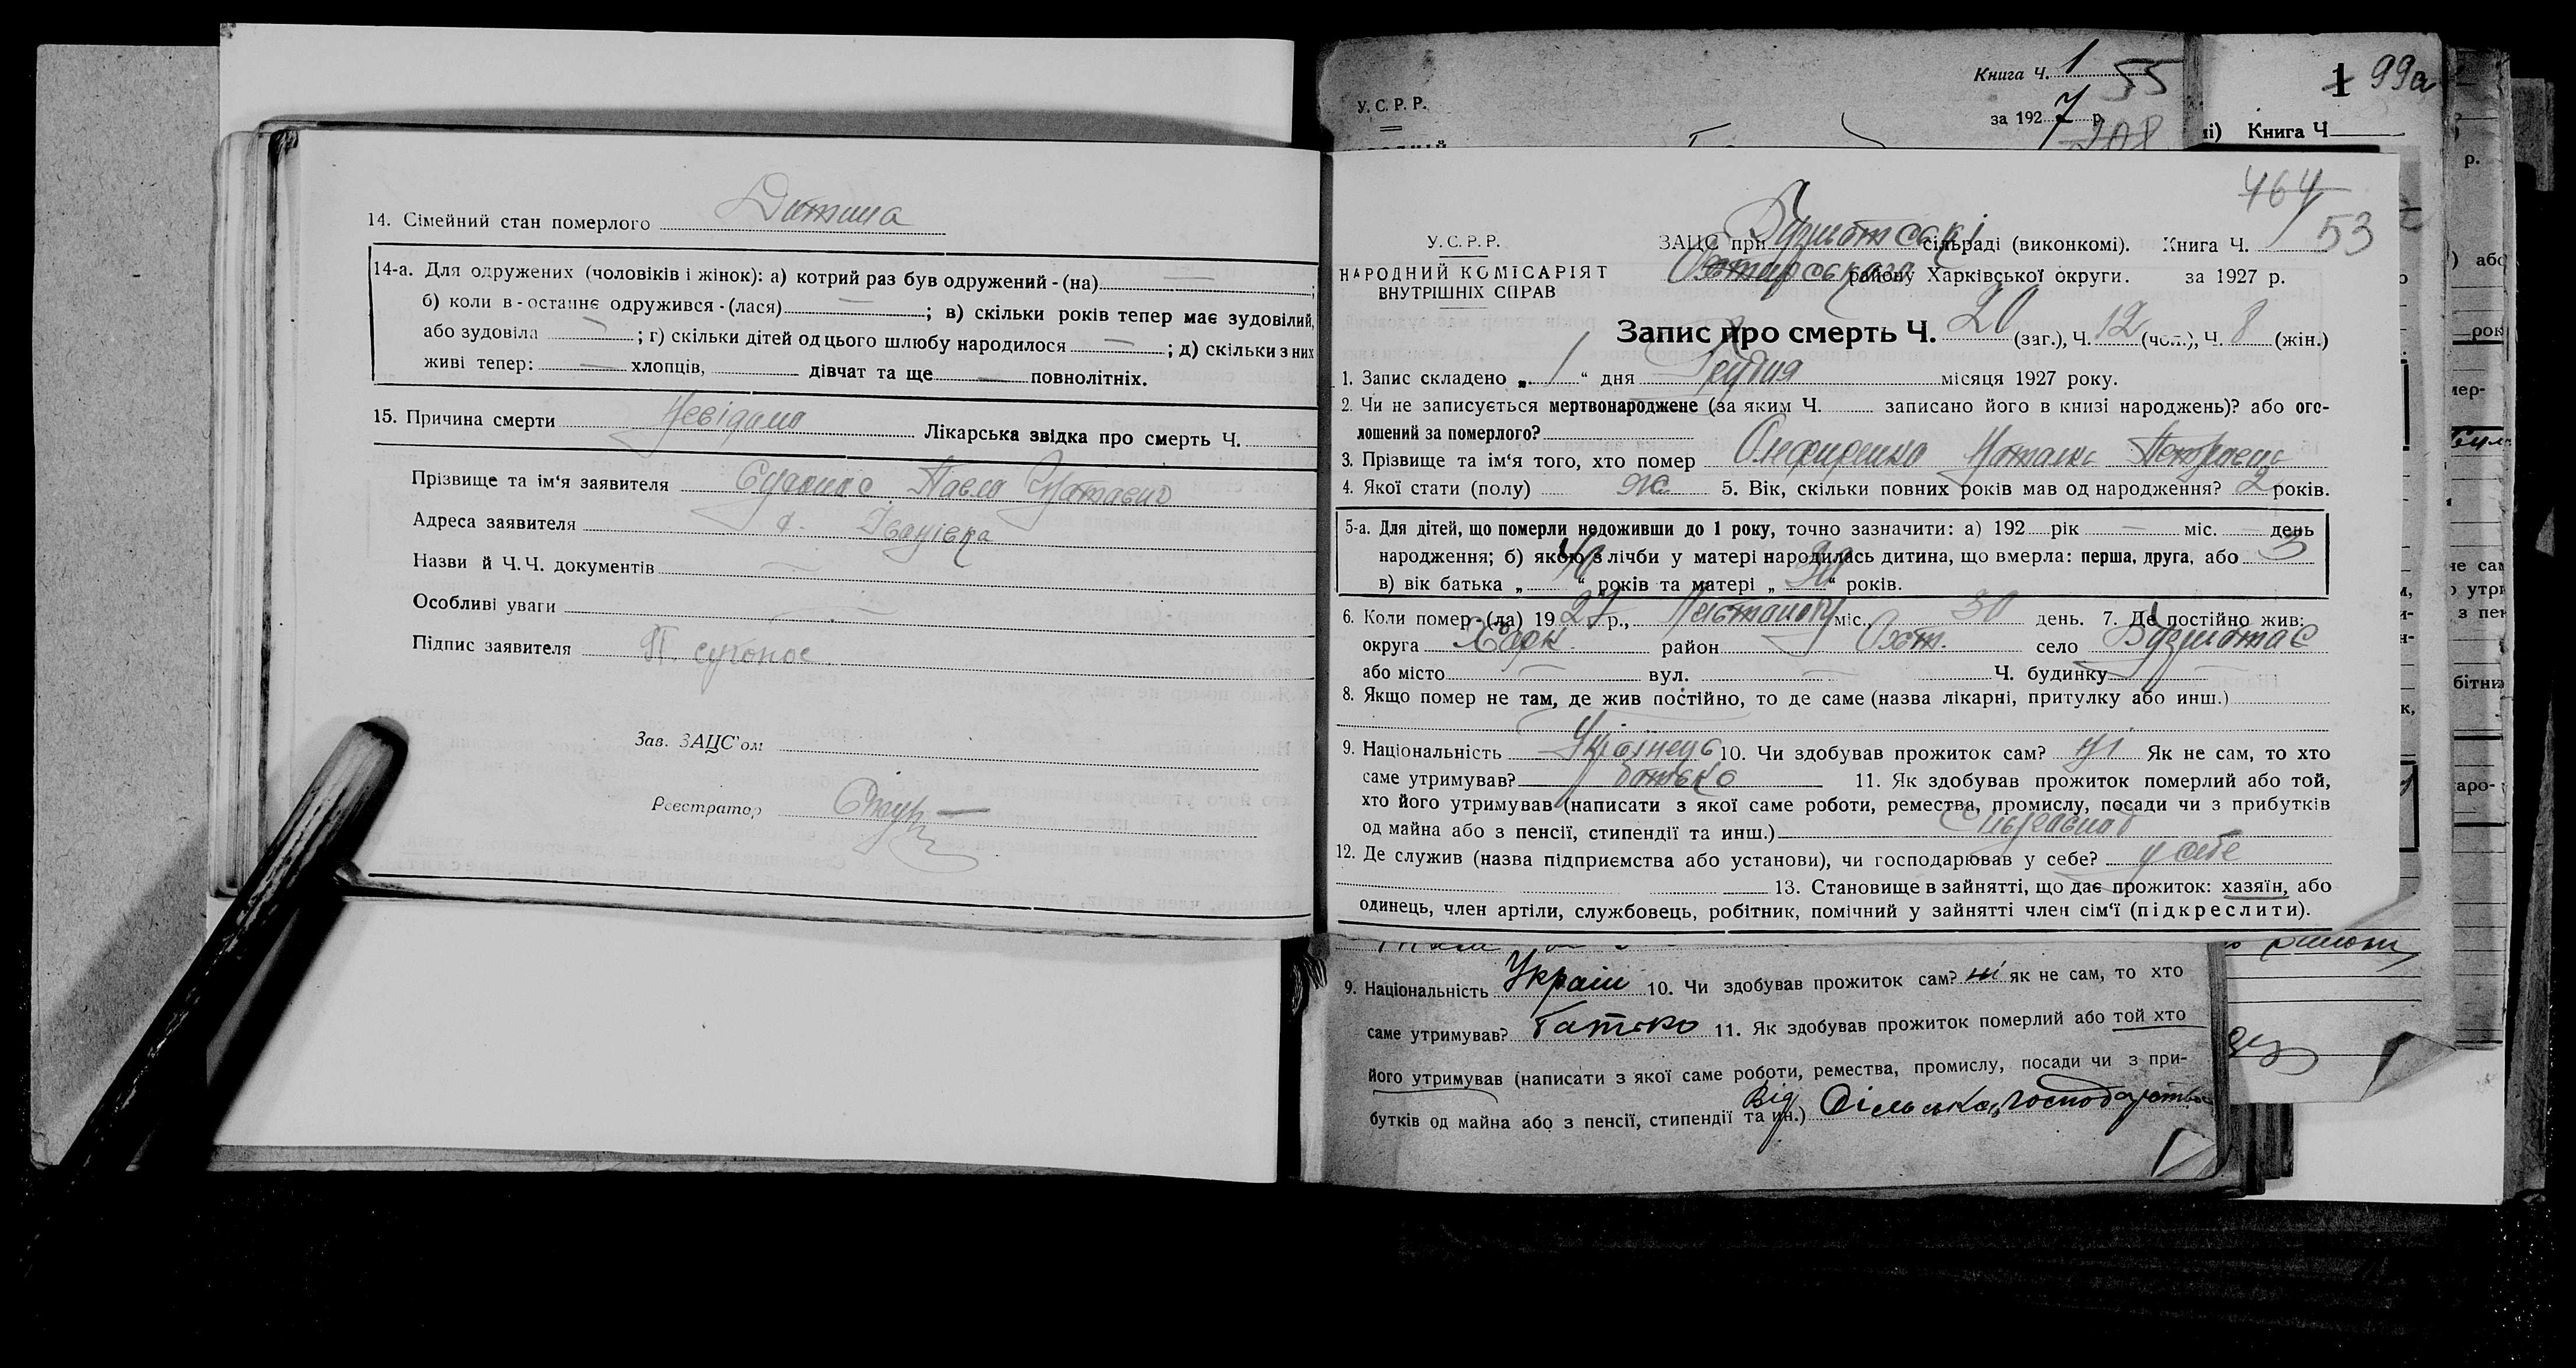 14. Сімейний стан померлого Дитина
14-а. Для одружених (чоловіків і жінок): а) котрий раз був одружений-(на) — ;
б) коли в-останнє одружився-(лася) — ; в) скільки років тепер має зудовілий,
або зудовіла — ; г) скільки дітей од цього шлюбу народилося — ; д) скільки з них
живі тепер: — хлопців, дівчат та ще — повнолітніх.
15. Причина смерти Невідома Лікарська звідка про смерть Ч.
Прізвище та ім'я заявителя Павло
Адреса заявителя Іванівка
Назви й Ч.Ч. документів —
Особливі уваги —
Підпис заявителя П. сугонос.
Зав. ЗАЦС'ом
Реєстратор
У.С.Р.Р.
Книга Ч. 1 55
за 1927 р.
208
1 99а
Книга Ч
р.
464
53
У.С.Р.Р.
НАРОДНИЙ КОМІСАРІЯТ
ВНУТРІШНІХ СПРАВ
ЗАЦС при сільраді (виконкомі). Книга Ч. 1
Охтирського району Харківської округи. за 1927 р.
Запис про смерть Ч. 20 (заг.), Ч. 12 (чол.), Ч. 8 (жін.)
1. Запис складено „1“ дня Грудня місяця 1927 року.
2. Чи не записується мертвонароджене (за яким Ч. записано його в книзі народжень)? або ого-
лошений за померлого?
3. Прізвище та ім'я того, хто помер Олефиренко Наталка Петровна
4. Якої стати (полу) ж. 5. Вік, скільки повних років мав од народження? 2 років.
5-а. Для дітей, що померли недоживши до 1 року, точно зазначити: а) 192 рік — міс. — день
народження; б) якою з лічби у матері народилась дитина, що вмерла: перша, друга, або 3
в) вік батька „ “ років та матері „ “ років.
6. Коли помер-(ла) 1927 р., Листопаду міс., 30 день. 7. Де постійно жив:
округа Харк. район Охт. село
або місто — вул. — Ч. будинку —
8. Якщо помер не там, де жив постійно, то де саме (назва лікарні, притулку або инш.)
9. Національність Українець 10. Чи здобував прожиток сам? ні Як не сам, то хто
саме утримував? батько 11. Як здобував прожиток померлий або той,
хто його утримував (написати з якої саме роботи, ремества, промислу, посади чи з прибутків
од майна або з пенсії, стипендії та инш.)
12. Де служив (назва підприємства або установи), чи господарював у себе? у себе
13. Становище в зайнятті, що дає прожиток: хазяїн, або
одинець, член артіли, службовець, робітник, помічний у зайнятті член сім'ї (підкреслити).
9. Національність Україн 10. Чи здобував прожиток сам? ні як не сам, то хто
саме утримував? батько 11. Як здобував прожиток померлий або той хто
його утримував (написати з якої саме роботи, ремества, промислу, посади чи з при-
бутків од майна або з пенсії, стипендії та ин.) Від